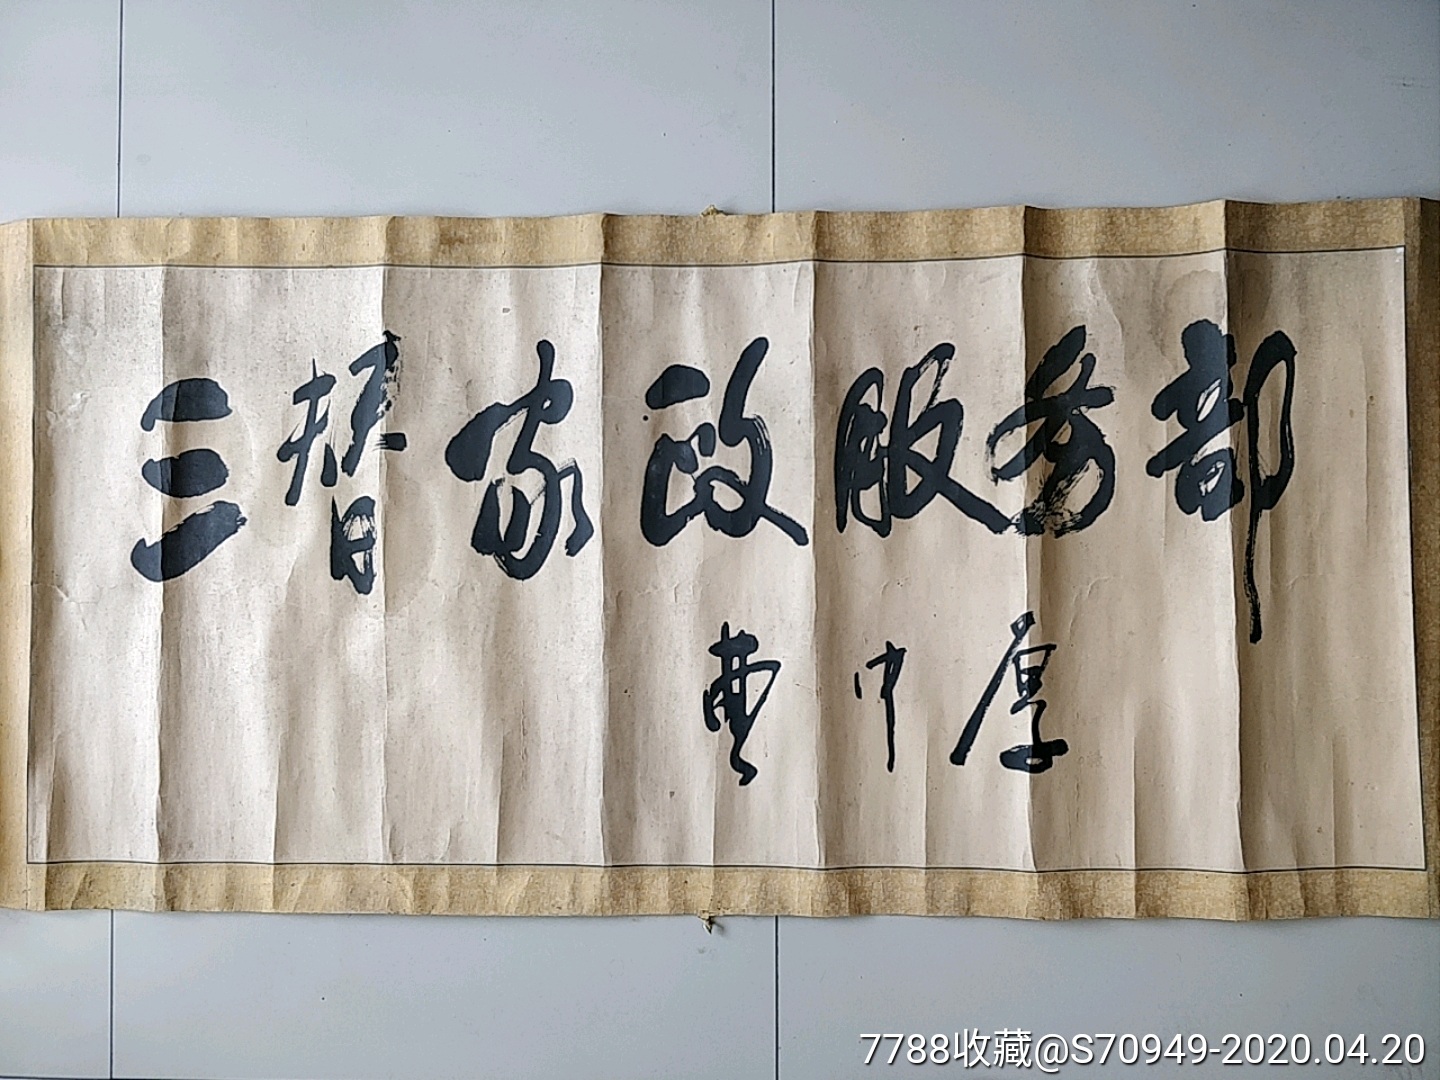 三替家政服务部
曹中厚
7788收藏@S70949-2020.04.20